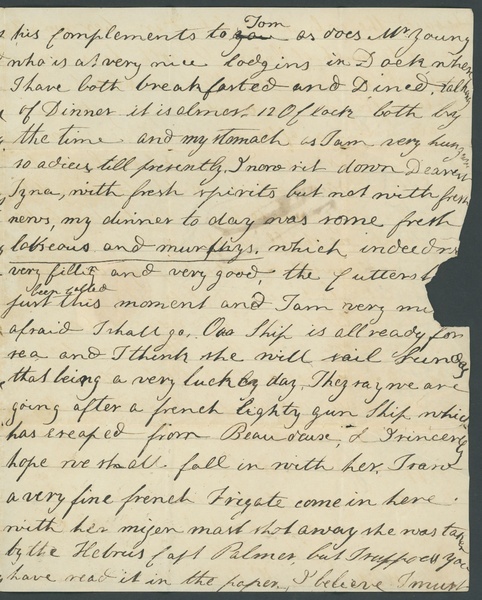 his Complements to Tom as does Mr Young
who is at very nice lodgins in Dock where
I have both breakfasted and Dined, talking
of Dinner it is almost 12 O Clock both by
the time and my stomach as I am very hungry
so adieu till presently, I now sit down Dearest
with fresh spirits but not with fresh
news, my dinner to day was some fresh
and which indeed
very and very good, the Cutters
been called
just this moment and I am very
afraid I shall go. Our Ship is all ready for
sea and I think she will sail Sunday
that being a very luckey day, They say we are
going after a french Eighty gun Ship which
has escaped from & I sincerely
hope we shall fall in with her. I saw
a very fine french Frigate come in here
with her mizen mast shot away she was taken
by the Hebrus Capt Palmer, but I suppose you
have read it in the paper, I believe I must